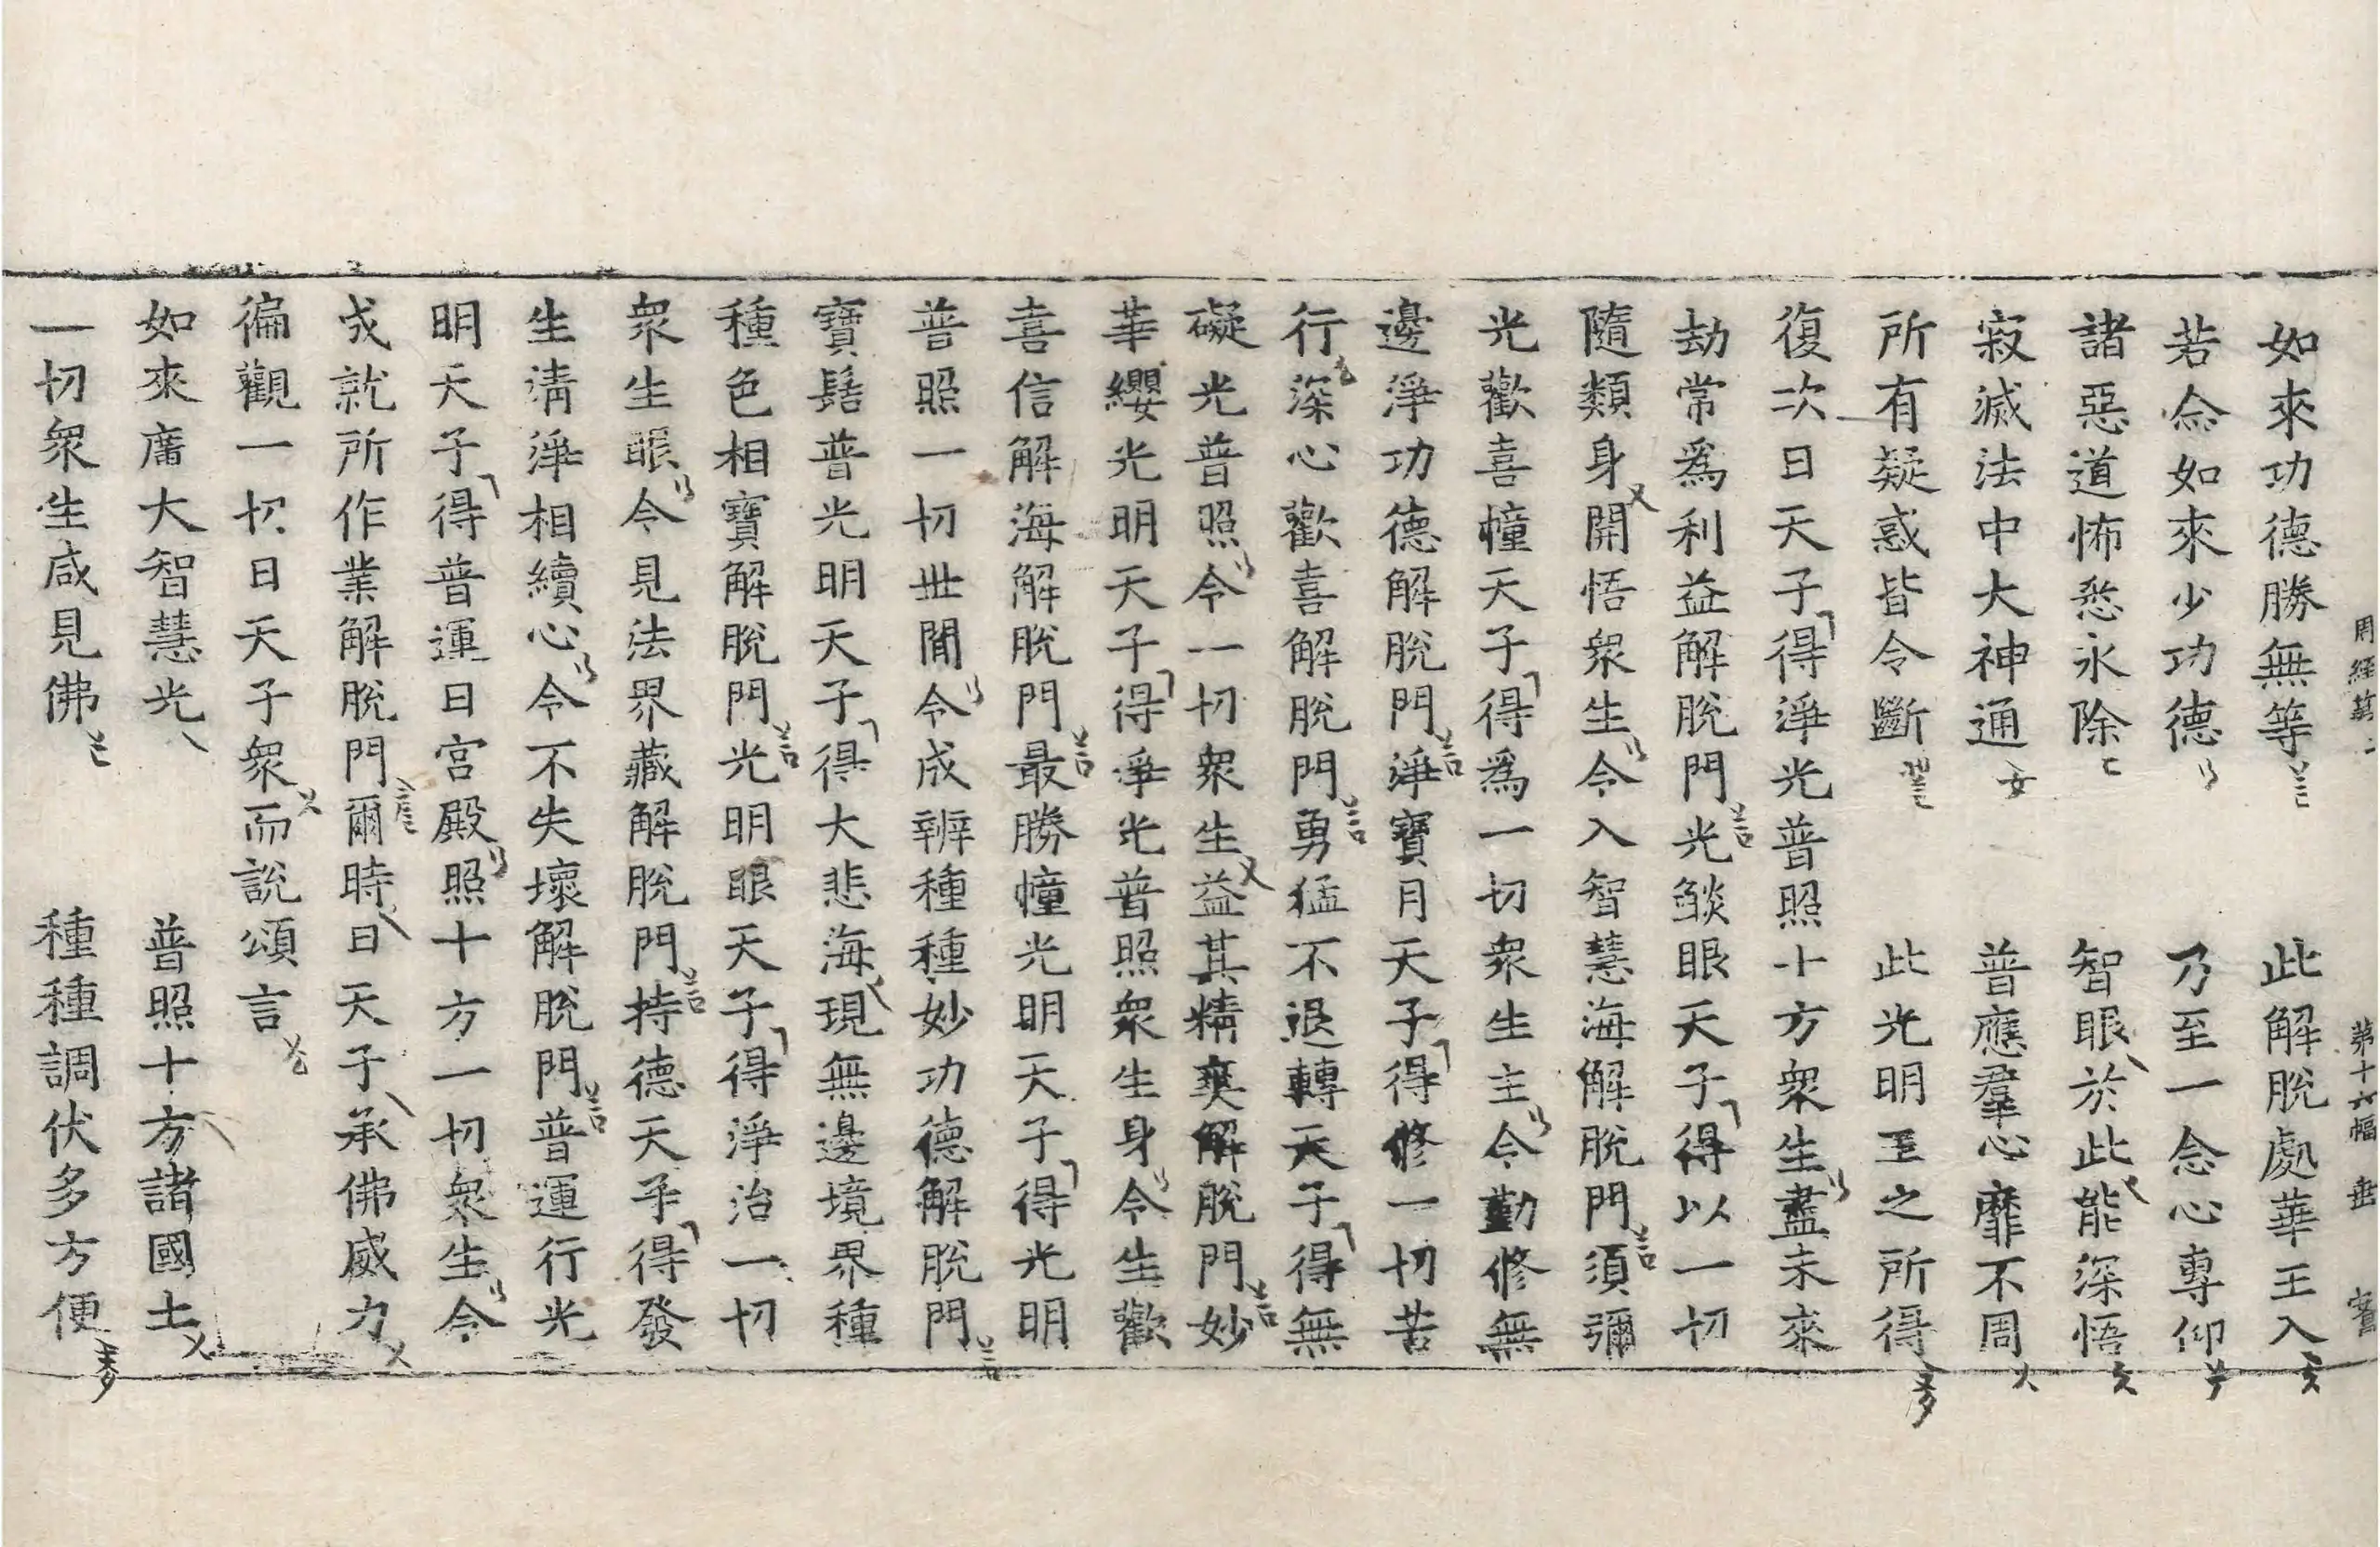 周經第二 第十六幅 垂
如來功德勝無等 此解脫處華王入
若念如來少功德 乃至一念心專仰
諸惡道怖悉永除 智眼於此能深悟
寂滅法中大神通 普應羣心靡不周
所有疑惑皆令斷 此光明王之所得
復次日天子得淨光普照十方衆生盡未來
劫常爲利益解脫門光𦦨眼天子得以一切
隨類身開悟衆生令入智慧海解脫門須彌
光歡喜幢天子得爲一切衆生主令勤修無
邊淨功德解脫門淨寶月天子得修一切苦
行深心歡喜解脫門勇猛不退轉天子得無
礙光普照令一切衆生益其精爽解脫門妙
華纓光明天子得淨光普照衆生身令生歡
喜信解海解脫門最勝幢光明天子得光明
普照一切世間令成辦種種妙功德解脫門
寶髻普光明天子得大悲海現無邊境界種
種色相寶解脫門光明眼天子得淨治一切
衆生眼令見法界藏解脫門持德天子得發
生清淨相續心令不失壞解脫門普運行光
明天子得普運日宮殿照十方一切衆生令
成就所作業解脫門爾時日天子承佛威力
徧觀一切日天子衆而說頌言
如來廣大智慧光 普照十方諸國土
一切衆生咸見佛 種種調伏多方便